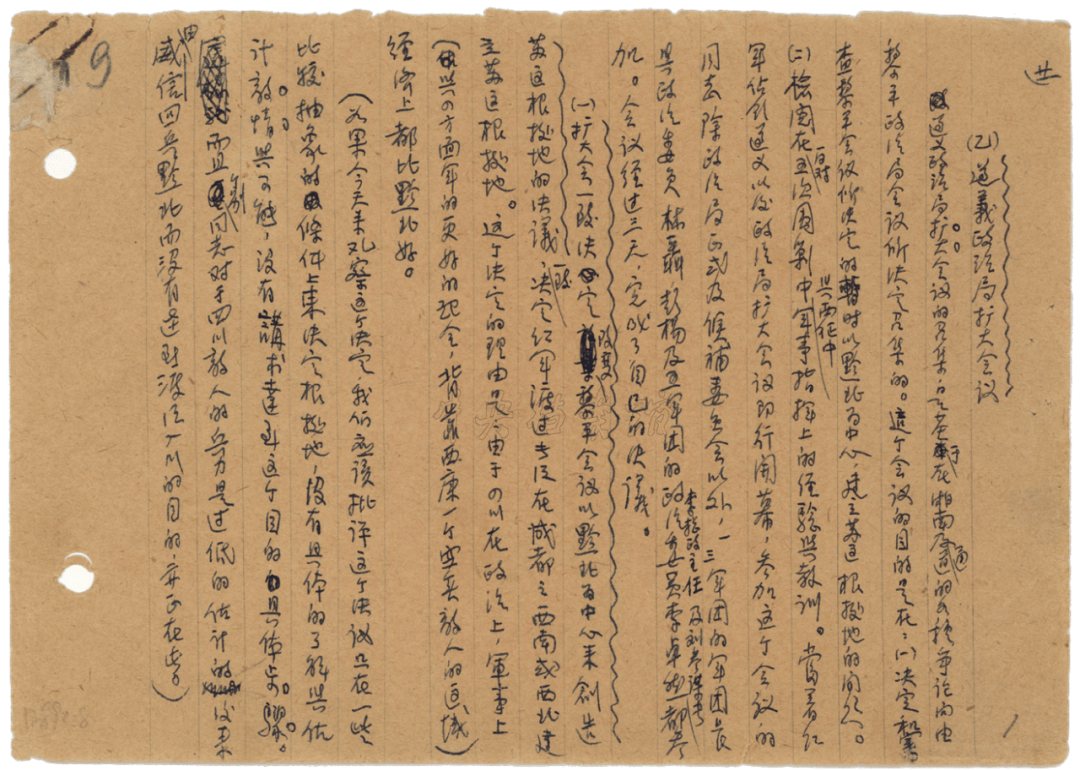 廿
(乙)遵義政治局扩大会议
遵义政治局扩大会议的召集,是基于在湘南及通道的各种争论而由
黎平政治局会议所决定召集的。这个会议的目的是在:(一)决定和審
查黎平会议所决定的暫时以黔北为中心,建立苏区根据地的问题。
(二)检阅在反对五次围剿中与西征中军事指挥上的经验與教训。当着红
军佔领遵义以后政治局扩大会议即行開幕,参加这个会议的
同志除政治局正式及候補委员会以外,一三军团的军团长
與政治委员林聶彭楊及五军团的政治委员李卓然李總政主任及刘参谋長都参
加。会议经过三天,完成了自己的决議。
(一)扩大会一致决定改变黎平会议以黔北为中心来創造
苏区根据地的决議,一致决定红军渡过长江在成都之西南或西北建
立苏区根据地。这个决定的理由是:由于四川在政治上,軍事上
(與四方面军的更好的配合,背靠西康一个空无敌人的区域)
经济上都比黔北好。
(如果今天来观察这个决定,我们应该批评这个决议只在一些
比较抽象的条件上来决定根据地,没有具体的了解与估
计敌情与可能,没有講求達到这个目的的具体步骤。
而且个别同志对于四川敌人的兵力是过低的估计的,后来
由威信回兵黔北而没有達到渡江入川的目的,亦正在此)
19